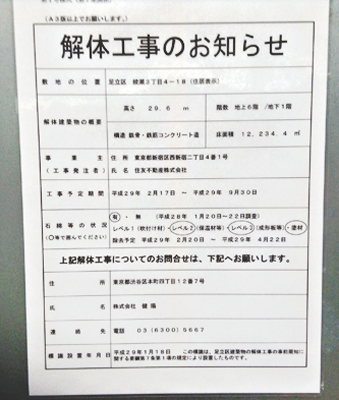 （A3版以上でお願いします。）
解体工事のお知らせ
敷地の位置 足立区 綾瀬3丁目4－18（住居表示）
解体建築物の概要 高さ 29.6 m 階数 地上6階 /地下1階
構造 鉄骨・鉄筋コンクリート造 床面積 12,234.4 ㎡
事業主 住所 東京都新宿区西新宿二丁目4番1号
（工事発注者） 氏名 住友不動産株式会社
工事予定期間 平成29年 2月17日 ～ 平成29年 9月30日
石綿等の状況 有・無 （平成28年 1月20日～22日調査）
（○等で囲んでください） レベル1（吹付け材）・レベル2（保温材等）・レベル3（成形板等）・塗材
除去予定 平成29年 2月20日 ～ 平成29年 4月22日
上記解体工事についてのお問合せは、下記へお願いします。
住所 東京都渋谷区本町四丁目12番7号
氏名 株式会社
連絡先 電話 03（6300）5667
標識設置年月日 平成29年1月18日 この標識は、足立区建築物の解体工事の事前周知に
関する要綱第7条第1項の規定により設置したものです。